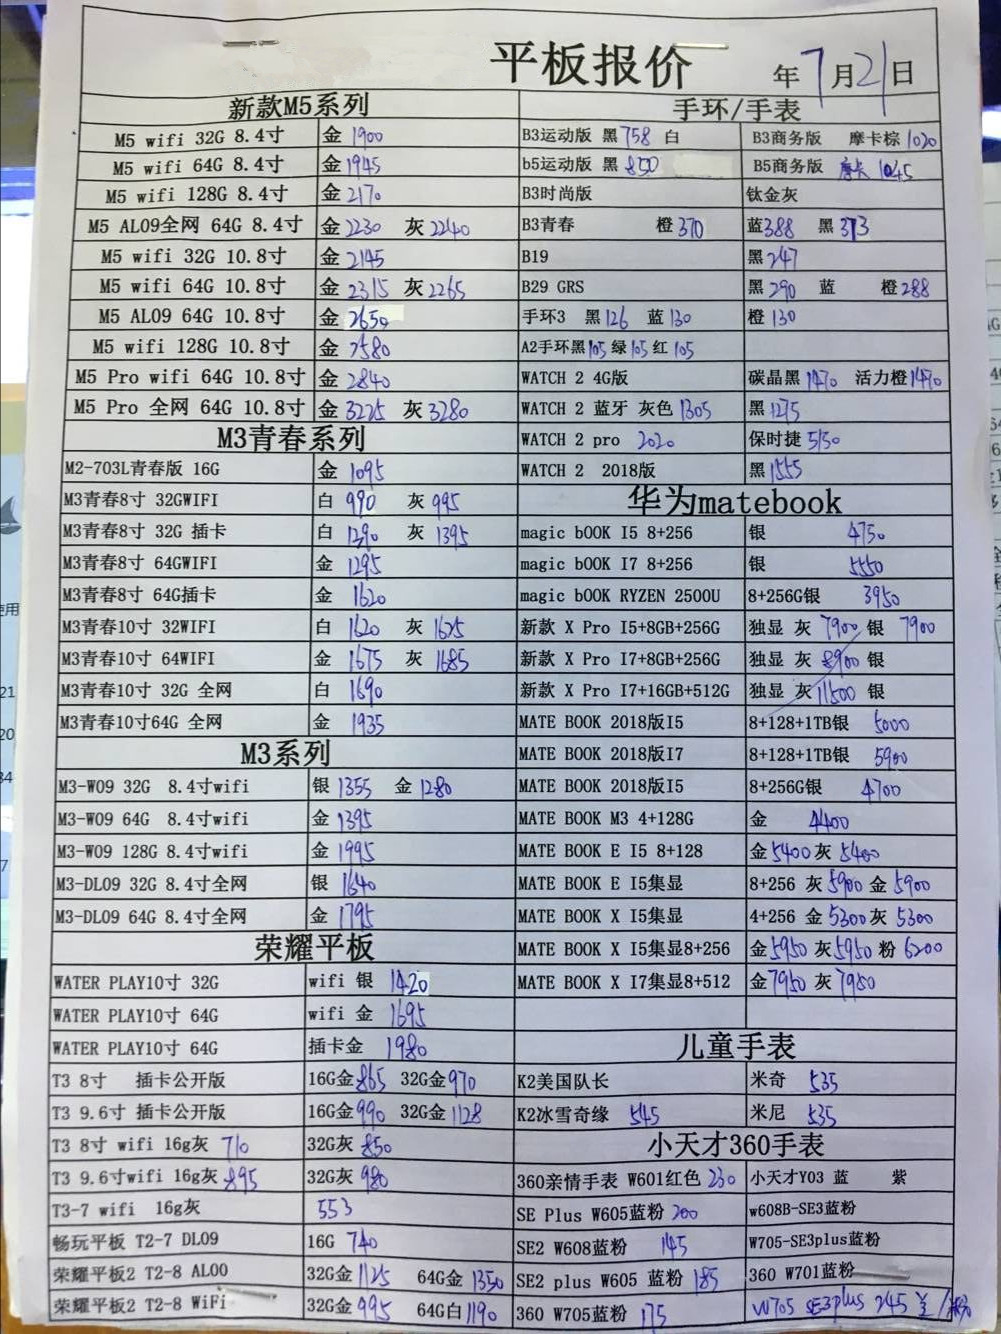 平板报价 年7月21日
新款M5系列
M5 wifi 32G 8.4寸 金 1900
M5 wifi 64G 8.4寸 金 1945
M5 wifi 128G 8.4寸 金 2170
M5 AL09全网 64G 8.4寸 金2230 灰2240
M5 wifi 32G 10.8寸 金 2145
M5 wifi 64G 10.8寸 金 2315 灰2265
M5 AL09 64G 10.8寸 金 2650
M5 wifi 128G 10.8寸 金 2580
M5 Pro wifi 64G 10.8寸 金 2840
M5 Pro 全网 64G 10.8寸 金3225 灰3280
M3青春系列
M2-703L青春版 16G 金 1095
M3青春8寸 32GWIFI 白 990 灰 995
M3青春8寸 32G 插卡 白 1290 灰 1395
M3青春8寸 64GWIFI 金 1295
M3青春8寸 64G插卡 金 1620
M3青春10寸 32WIFI 白 1620 灰 1625
M3青春10寸 64WIFI 金 1675 灰 1685
M3青春10寸 32G 全网 白 1690
M3青春10寸64G 全网 金 1935
M3系列
M3-W09 32G 8.4寸wifi 银 1355 金 1280
M3-W09 64G 8.4寸wifi 金 1395
M3-W09 128G 8.4寸wifi 金 1995
M3-DL09 32G 8.4寸全网 银 1640
M3-DL09 64G 8.4寸全网 金 1795
荣耀平板
WATER PLAY10寸 32G wifi 银 1420
WATER PLAY10寸 64G wifi 金 1695
WATER PLAY10寸 64G 插卡金 1980
T3 8寸 插卡公开版 16G金865 32G金970
T3 9.6寸 插卡公开版 16G金990 32G金1128
T3 8寸 wifi 16g灰 710 32G灰 850
T3 9.6寸wifi 16g灰 895 32G灰 980
T3-7 wifi 16g灰 553
畅玩平板 T2-7 DL09 16G 740
荣耀平板2 T2-8 AL00 32G金1125 64G金 1350
荣耀平板2 T2-8 WiFi 32G金995 64G白1190
手环/手表
B3运动版 黑758 白 B3商务版 摩卡棕 1020
b5运动版 黑 850 B5商务版 摩卡 1045
B3时尚版 钛金灰
B3青春 橙370 蓝388 黑373
B19 黑247
B29 GRS 黑290 蓝 橙288
手环3 黑126 蓝130 橙130
A2手环黑105 绿105 红105
WATCH 2 4G版 碳晶黑1470 活力橙1470
WATCH 2 蓝牙 灰色1305 黑1275
WATCH 2 pro 2020 保时捷5150
WATCH 2 2018版 黑1555
华为matebook
magic bOOK I5 8+256 银 4750
magic bOOK I7 8+256 银 5550
magic bOOK RYZEN 2500U 8+256G银 3950
新款 X Pro I5+8GB+256G 独显 灰 7900 银 7900
新款 X Pro I7+8GB+256G 独显 灰 8900 银
新款 X Pro I7+16GB+512G 独显 灰11500 银
MATE BOOK 2018版I5 8+128+1TB银 5000
MATE BOOK 2018版I7 8+128+1TB银 5900
MATE BOOK 2018版I5 8+256G银 4700
MATE BOOK M3 4+128G 金 4400
MATE BOOK E I5 8+128 金5400灰 5400
MATE BOOK E I5集显 8+256 灰5900 金 5900
MATE BOOK X I5集显 4+256 金5300灰 5300
MATE BOOK X I5集显8+256 金5950 灰5950 粉 6200
MATE BOOK X I7集显8+512 金7950 灰7950
儿童手表
K2美国队长 米奇 535
K2冰雪奇缘 545 米尼 535
小天才360手表
360亲情手表 W601红色 230 小天才Y03 蓝 紫
SE Plus W605蓝粉 200 w608B-SE3蓝粉
SE2 W608蓝粉 145 W705-SE3plus蓝粉
SE2 plus W605 蓝粉 185 360 W701蓝粉
360 W705蓝粉 175 W705 SE3plus 245 蓝/粉